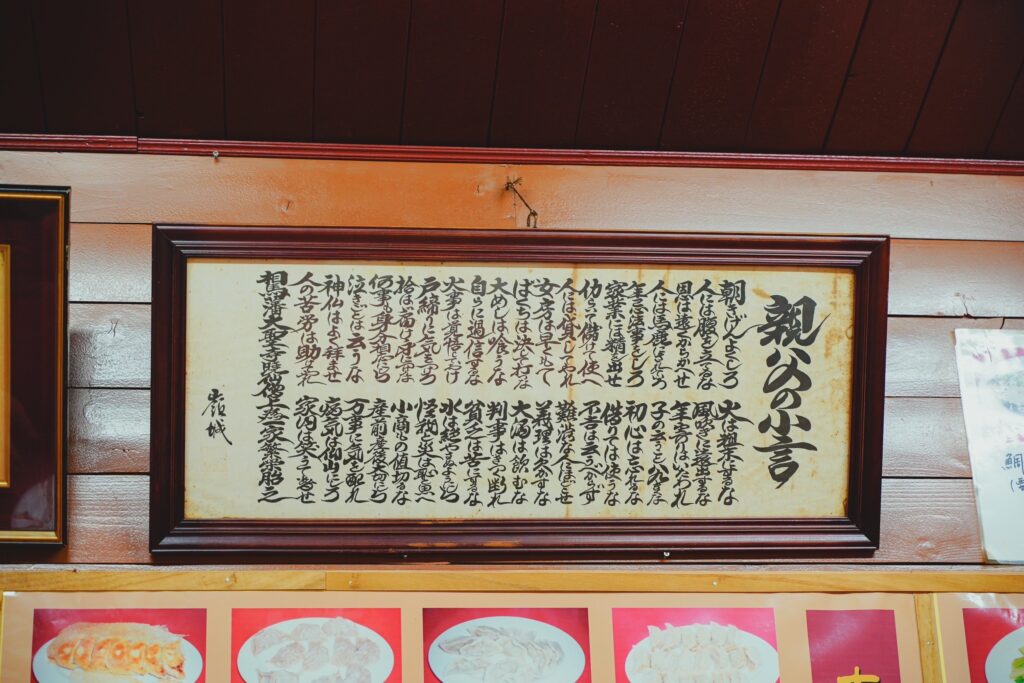 親父の小言
朝きげんよくしろ　火は粗末にするな
人には腹を立てるな　風吹きに遠出するな
恩は遠くからかへせ　年寄はいたわれ
人には馬鹿にされろ　子の云うこと八九はきくな
年忌法事をしろ　初心は忘れるな
家業には精を出せ　借りては使うな
働いて儲けて使へ　不吉は云うべからず
人には貸してやれ　難渋な人に施せ
女房は早くもて　義理は欠かすな
ばくちは決して打な　大酒は飲むな
大めしは喰うな　判事はきつく断れ
自らに過信するな　貧乏は苦にするな
火事は覚悟しておけ　水は絶やさぬにしろ
戸締りに気をつけろ　怪我と災は恥と思へ
拾わば届け身につけるな　小商もの値切るな
何事も身分相応にしろ　産前産後大切にしろ
泣きごとは云うな　万事に気を配れ
神仏はよく拝ませ　病気は仰山にしろ
人の苦労は助けてやれ　家内は笑ふて暮せ
相馬藩大聖寺暁仙僧上為一家繁盛胎之
嶺城
鯛